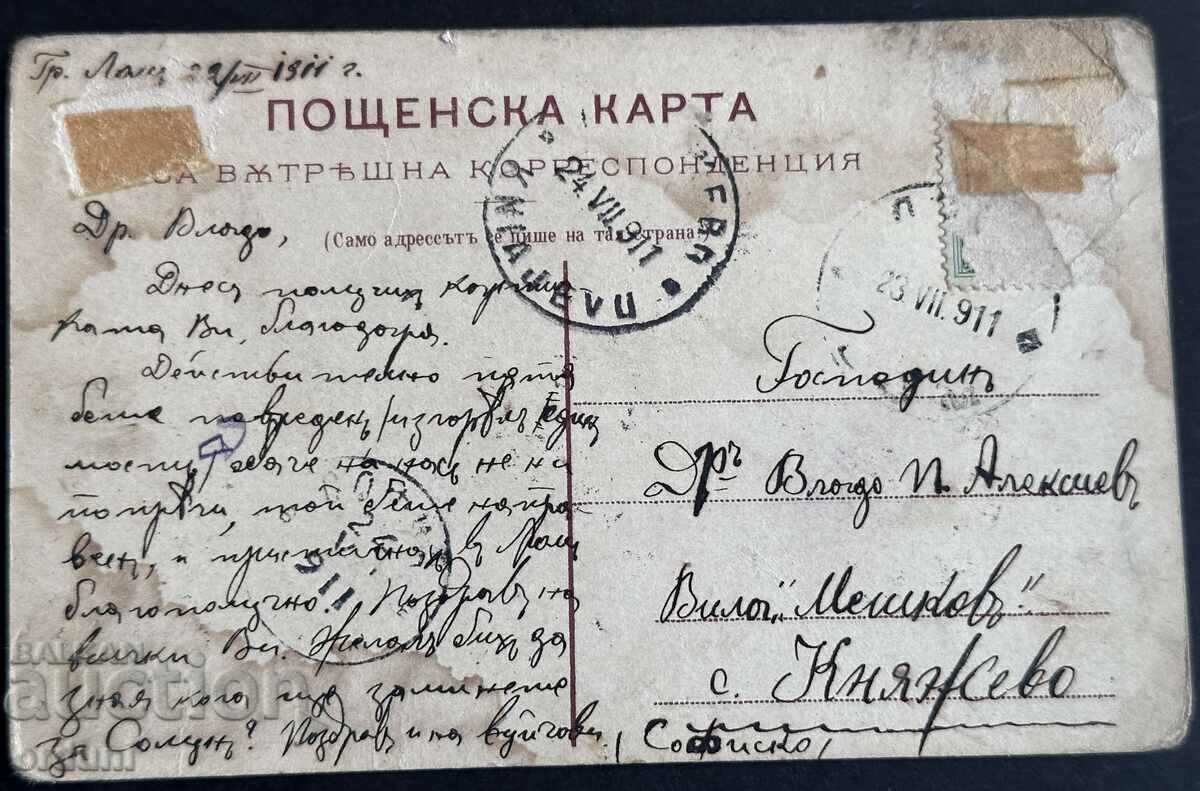 Гр. Ломъ 22/VII 1911 г.
ПОЩЕНСКА КАРТА
ЗА ВѪТРѢШНА КОРРЕСПОНДЕНЦИЯ
(Само адрессътъ се пише на тая страна)
Др. Владо,
Днесъ получихъ картич
ката Ви, благодаря.
Действително пътя
беше повреденъ /изгорѣлъ единъ
мостъ/, обаче на насъ не ни
попрѣчи, той беше напра
венъ, и пристигнахъ въ Ломъ
благополучно. Поздравъ на
всички Ви. Желалъ бихъ да
зная кога ще заминете
за Солунъ? Поздравъ и на вуйчови.
24.VII.911
23.VII.911
911
Господинъ
Дръ Владо П. Алексиевъ
Вила „Мешковъ“
с. Княжево
(Софийско)
BALKAN
auction